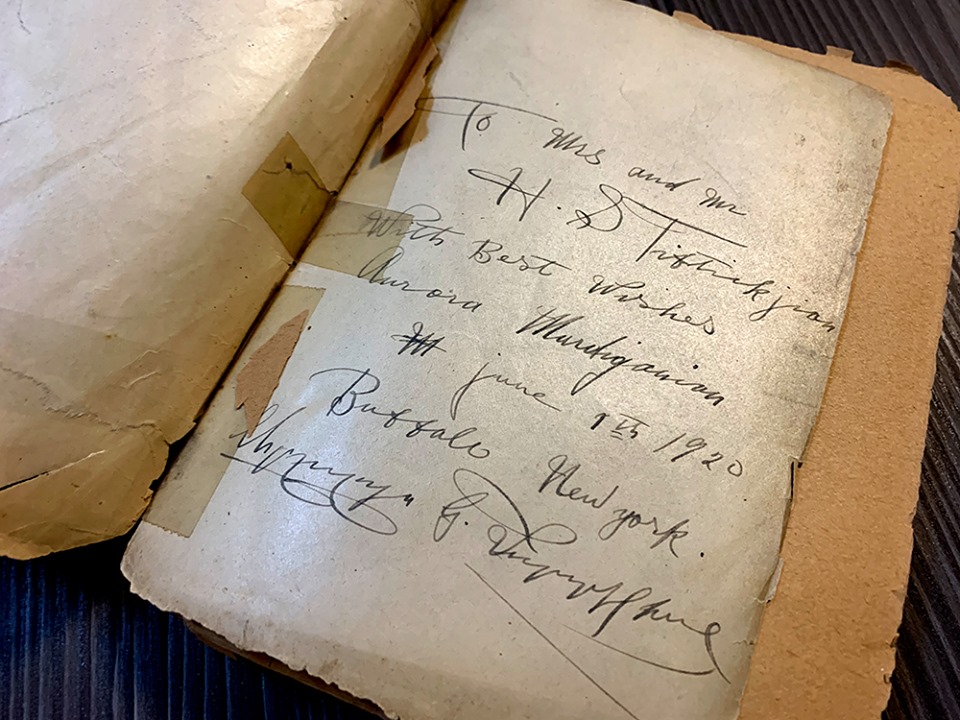 To Mrs and Mr
H. S Tiftickjian
With Best Wishes
Aurora Mardiganian
June 1920
Buffalo New york.